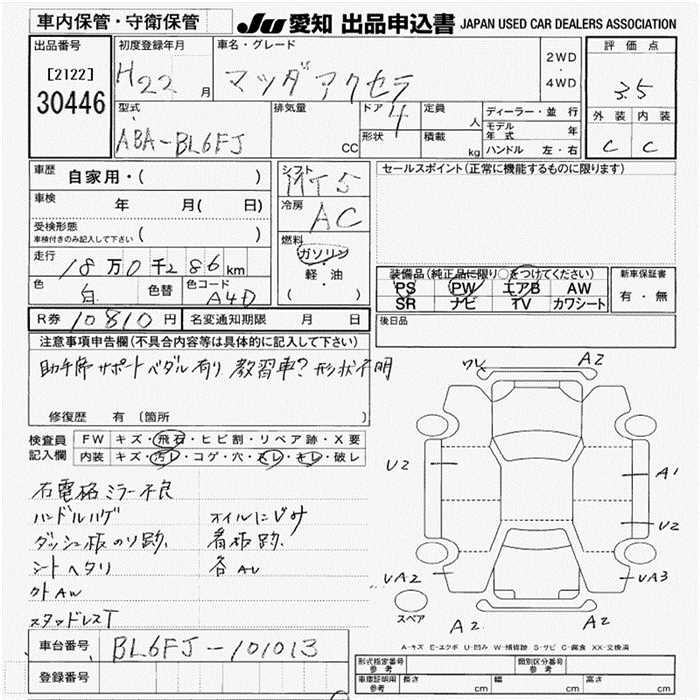 車内保管・守衛保管
JU 愛知 出品申込書 JAPAN USED CAR DEALERS ASSOCIATION
出品番号
[2122]
30446
初度登録年月
H22 月
車名・グレード
マツダアクセラ
2WD
・
4WD
評価点
3.5
外装 内装
C C
型式
ABA-BL6FJ
排気量
CC
ドア 4
形状
定員 人
積載 kg
ディーラー・並行
モデル年式 年
ハンドル 左・右
車歴 自家用・( )
車検 年 月( 日)
受検形態
車検付きのみ記入して下さい ( )
走行 18万0千286km
色 白 色替 色コード A4D
シフト MT5
冷房 AC
燃料
ガソリン
軽・油
( )
セールスポイント(正常に機能するものに限ります)
装備品(純正品に限り○をつけてください)
PS PW エアB AW
SR ナビ TV カワシート
新車保証書
有・無
R券 10810円 名変通知期限 月 日
後日品
注意事項申告欄(不具合内容等は具体的に記入して下さい)
助手席サポートペダル有り 教習車?形状不明
修復歴 有 〔箇所 〕
検査員記入欄
FW キズ・飛石・ヒビ割・リペア跡・X要
内装 キズ・汚レ・コゲ・穴・スレ・キレ・破レ
右電格ミラー不良
ハンドルハゲ オイルにじみ
ダッシュ板のリ跡 看板跡
シートヘタリ 各AU
外AW
スタッドレスT
車台番号 BL6FJ-101013
登録番号
ワレ A2
U2 A1
U2
UA2 UA3
スペア A2 A2
A-キズ E-エクボ U-凹み W-補修跡 S-サビ C-腐食 XX-交換済
形式指定番号 参考
類別区分番号 参考
車庫証明用 参考 長さ cm 幅 cm 高さ cm